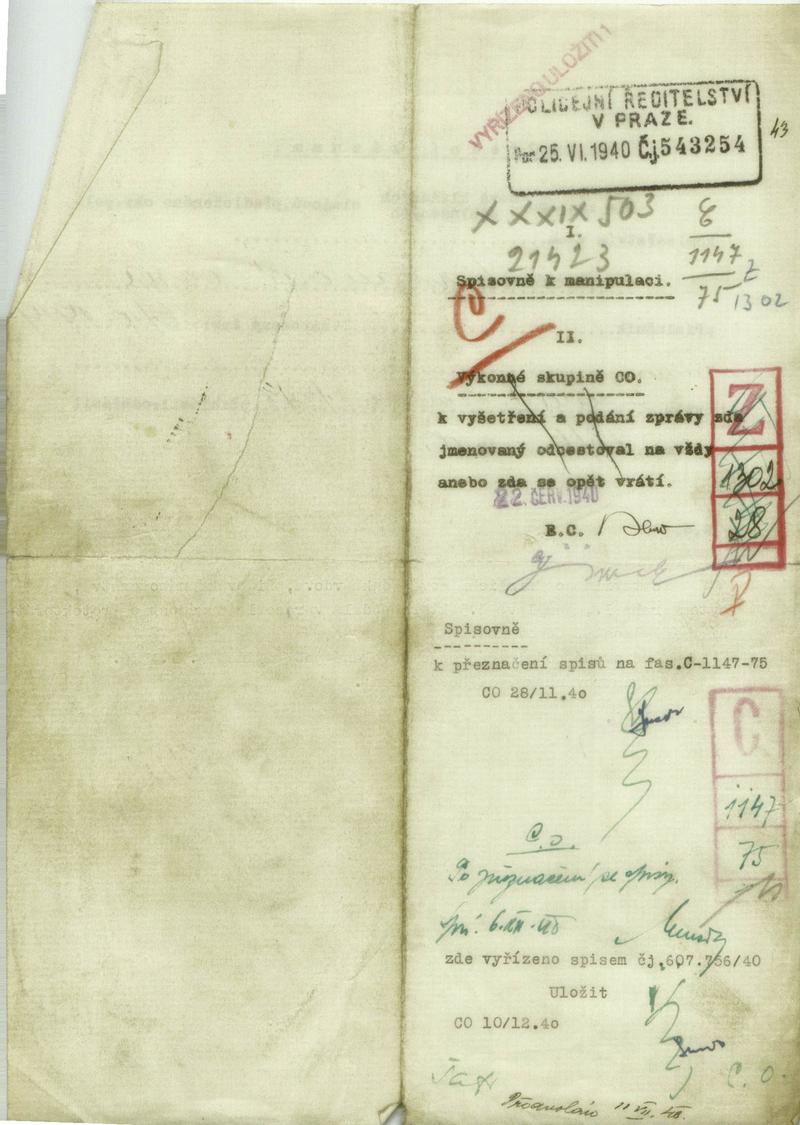 VYŘÍZENO ULOŽITI!
POLICEJNÍ ŘEDITELSTVÍ
V PRAZE.
25. VI. 1940 Čj. 543254
43
XXXIX 503
21423
C
1147
75
Z
1302
I.
Spisovně k manipulaci.
II.
Výkonné skupině CO.
k vyšetření a podání zprávy zda
jmenovaný odcestoval na vždy
anebo zda se opět vrátí.
22. ČERV. 1940
B.C.
Z
1302
28
Spisovně
k přeznačení spisů na fas.C-1147-75
CO 28/11.40
C
1147
75
C.O.
Po přeznačení se spisy.
6.XII.40
zde vyřízeno spisem čj.607.756/40
Uložit
CO 10/12.40
C. O.